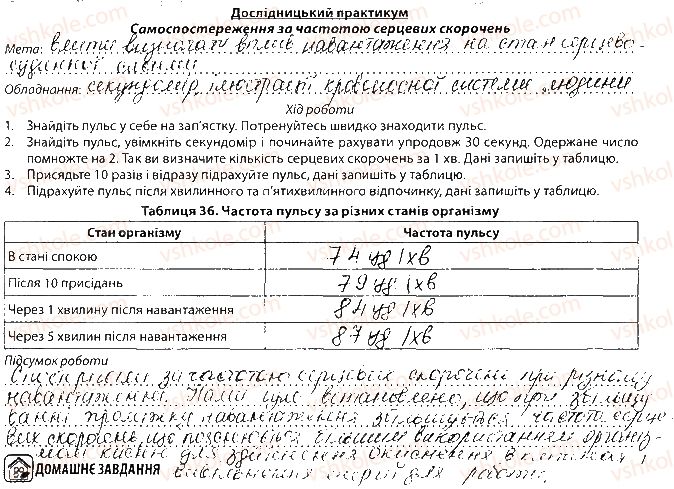 Дослідницький практикум
Самоспостереження за частотою серцевих скорочень
Мета: вміти визначати вплив навантаження на стан серцево-
судинної системи
Обладнання: секундомір, ілюстрації кровоносної системи людини
Хід роботи
1. Знайдіть пульс у себе на зап'ястку. Потренуйтесь швидко знаходити пульс.
2. Знайдіть пульс, увімкніть секундомір і починайте рахувати упродовж 30 секунд. Одержане число
помножте на 2. Так ви визначите кількість серцевих скорочень за 1 хв. Дані запишіть у таблицю.
3. Присядьте 10 разів і відразу підрахуйте пульс, дані запишіть у таблицю.
4. Підрахуйте пульс після хвилинного та п'ятихвилинного відпочинку, дані запишіть у таблицю.
Таблиця 36. Частота пульсу за різних станів організму
Стан організму Частота пульсу
В стані спокою 74 уд/хв
Після 10 присідань 79 уд/хв
Через 1 хвилину після навантаження 84 уд/хв
Через 5 хвилин після навантаження 87 уд/хв
Підсумок роботи
за частотою серцевих скорочень при різному
навантаженні. Нами було встановлено, що при збільшу
ванні проміжку навантаження збільшується частота серце
вих скорочень, що пояснюється більшим використанням організ-
мом кисню для здійснення окиснення в клітинах і
ДОМАШНЄ ЗАВДАННЯ вивільнення енергії для роботи.